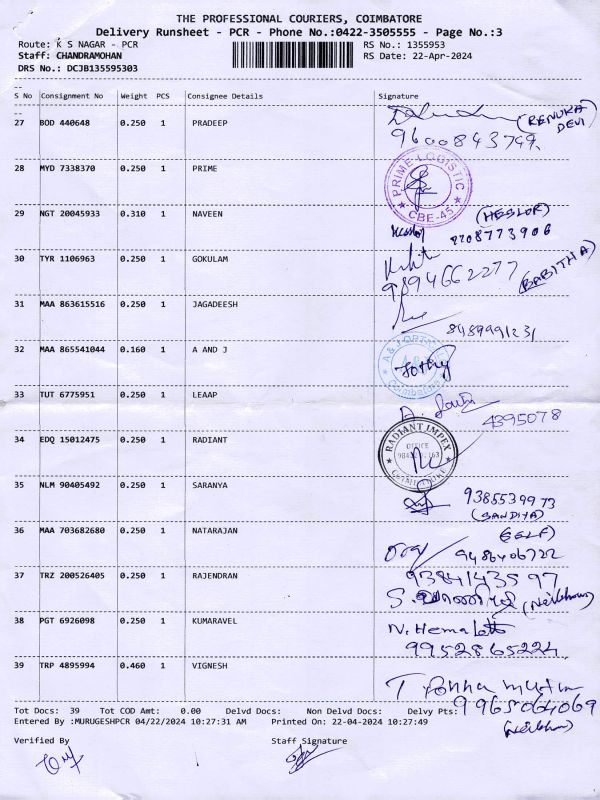 THE PROFESSIONAL COURIERS, COIMBATORE
Delivery Runsheet - PCR - Phone No.:0422-3505555 - Page No.:3
Route: K S NAGAR - PCR RS No.: 1355953
Staff: CHANDRAMOHAN RS Date: 22-Apr-2024
DRS No.: DCJB135595303
S No Consignment No Weight PCS Consignee Details Signature
27 BOD 440648 0.250 1 PRADEEP (RENUKA DEVI)
9600843749
28 MYD 7338370 0.250 1 PRIME PRIME LOGISTIC CBE-45
29 NGT 20045933 0.310 1 NAVEEN
2208773906
30 TYR 1106963 0.250 1 GOKULAM
9894662277 (BABITHA)
31 MAA 863615516 0.250 1 JAGADEESH
8489991231
32 MAA 865541044 0.160 1 A AND J
33 TUT 6775951 0.250 1 LEAAP
4395078
34 EDQ 15012475 0.250 1 RADIANT RADIANT IMPEX OFFICE
35 NLM 90405492 0.250 1 SARANYA
9385539973
(SANDIYA)
36 MAA 703682680 0.250 1 NATARAJAN (SELF)
9486406722
37 TRZ 200526405 0.250 1 RAJENDRAN 9384143597
38 PGT 6926098 0.250 1 KUMARAVEL N. Hemalatha
9952865224
39 TRP 4895994 0.460 1 VIGNESH
Tot Docs: 39 Tot COD Amt: 0.00 Delvd Docs: Non Delvd Docs: Delvy Pts:
9965064069
Entered By :MURUGESHPCR 04/22/2024 10:27:31 AM Printed On: 22-04-2024 10:27:49
Verified By Staff Signature